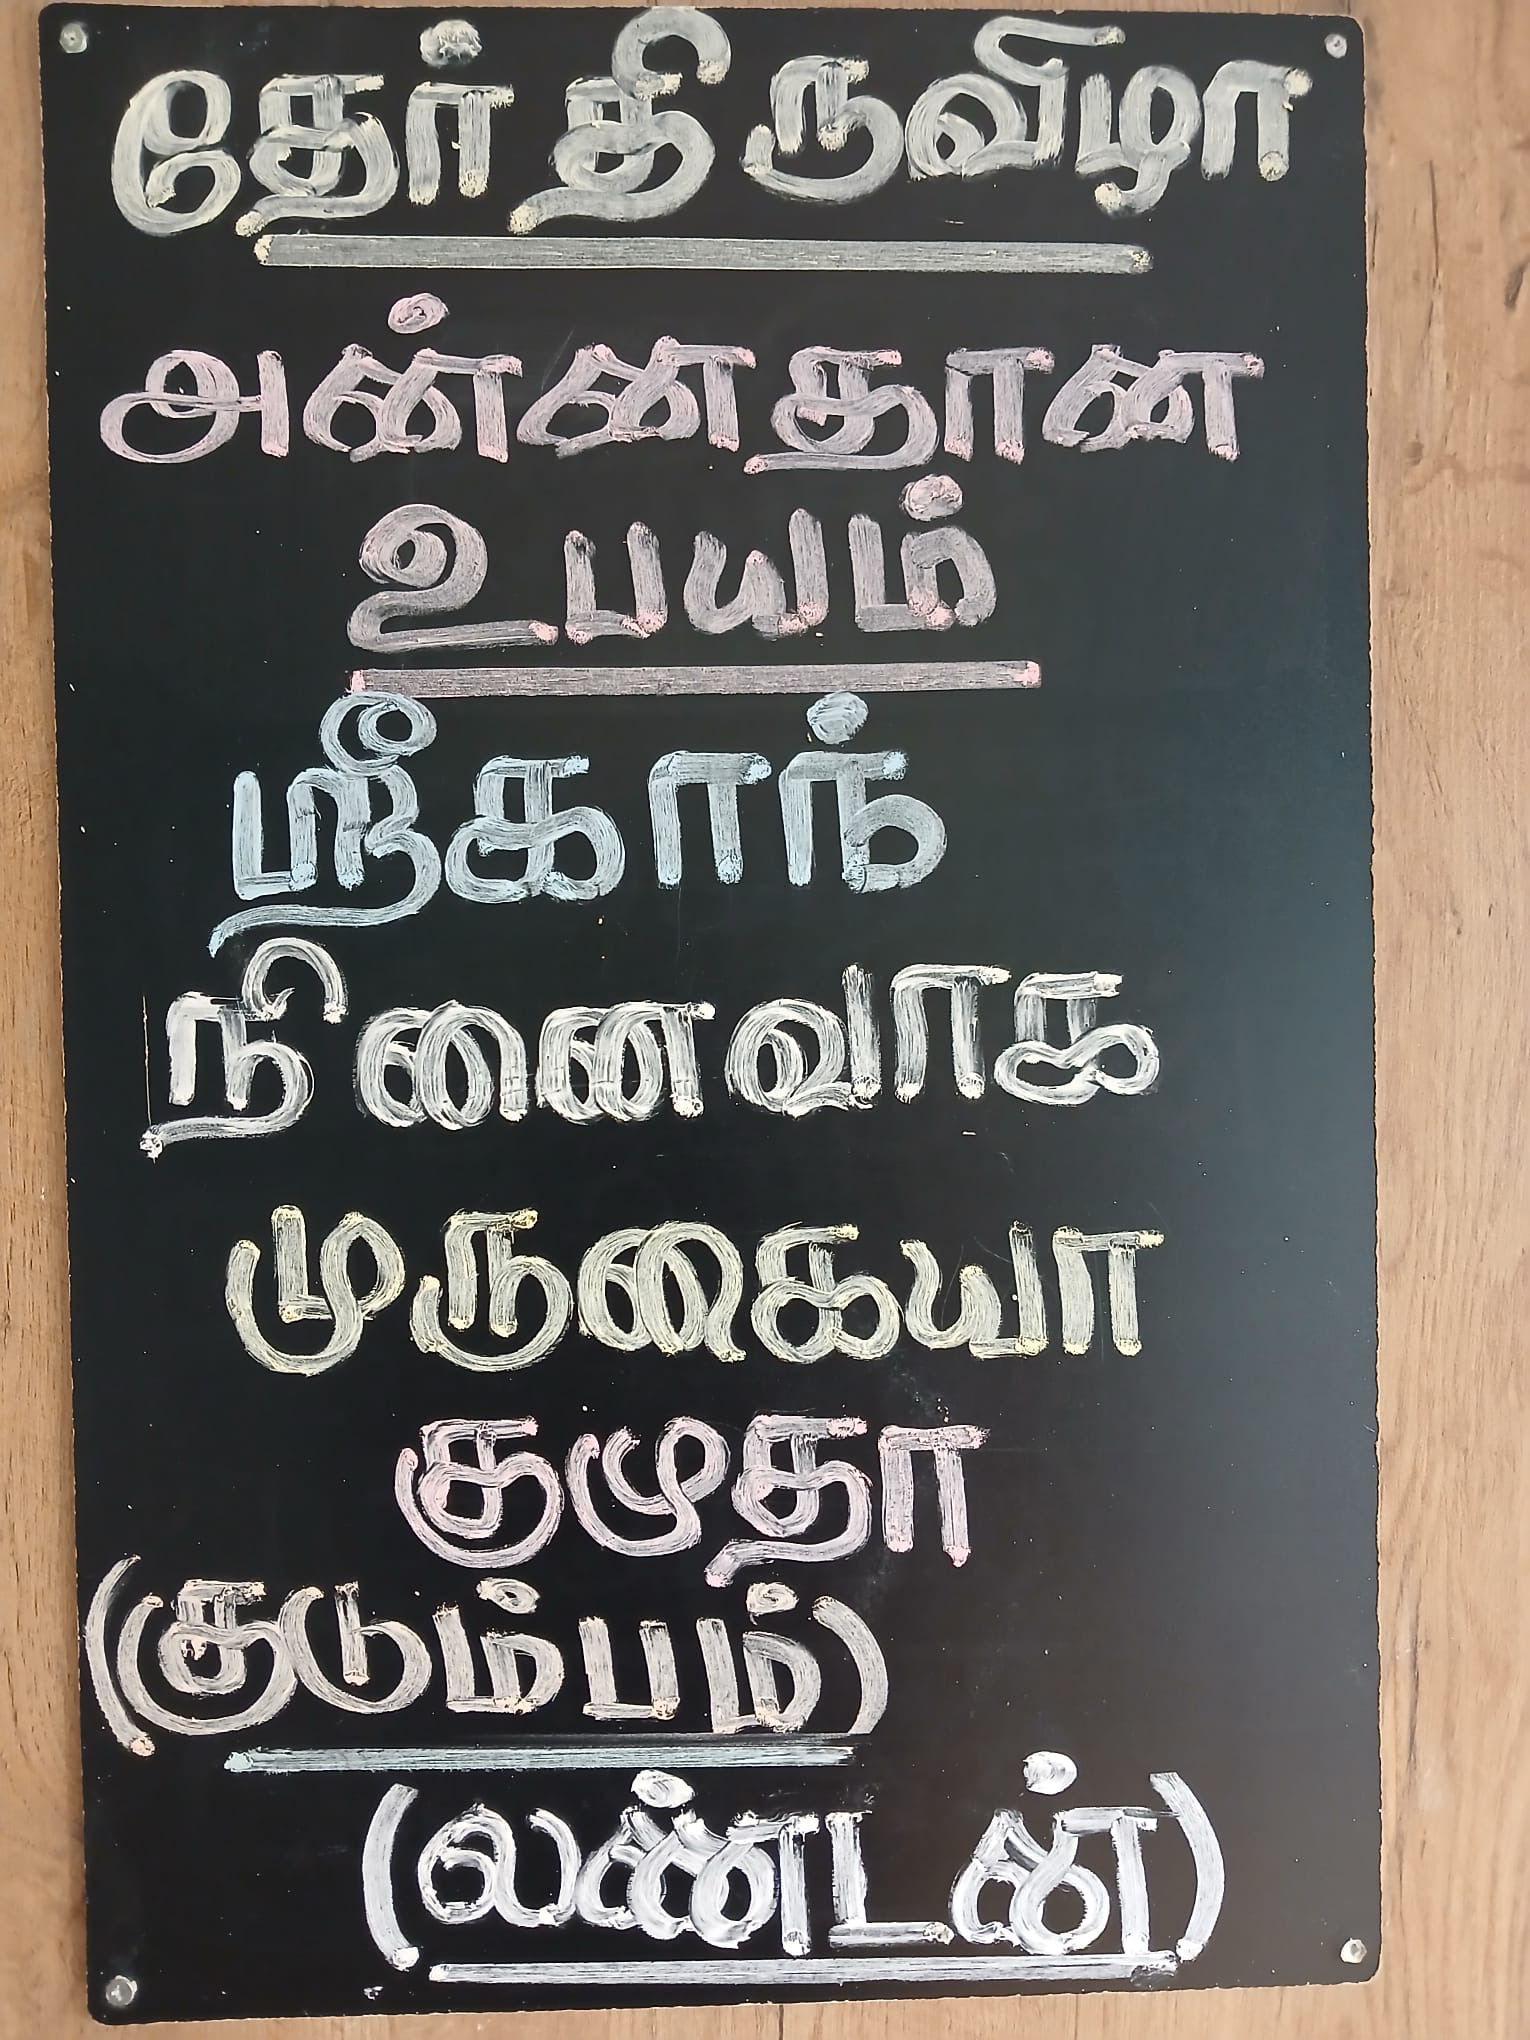 தேர் திருவிழா
அன்னதான
உபயம்
ஸ்ரீகாந்
நினைவாக
முருகையா
குமுதா
(குடும்பம்)
(லண்டன்)